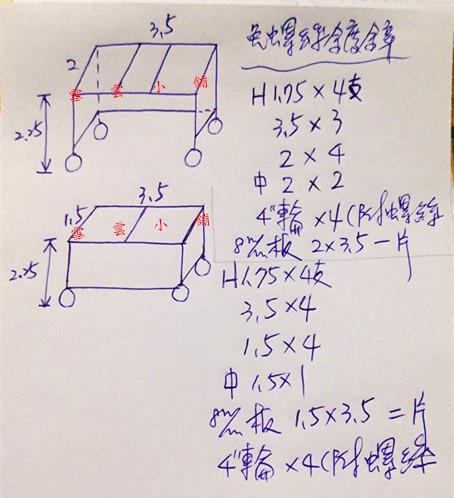 3.5
2
雲 雲 小 舖
2.25
3.5
1.5
雲 雲 小 舖
2.25
免螺絲角鋼
H1.75×4支
3.5×3
2×4
中 2×2
4"輪×4(附螺絲
8mm板 2×3.5一片
H1.75×4支
3.5×4
1.5×4
中 1.5×1
板 1.5×3.5=片
4"輪×4(附螺絲